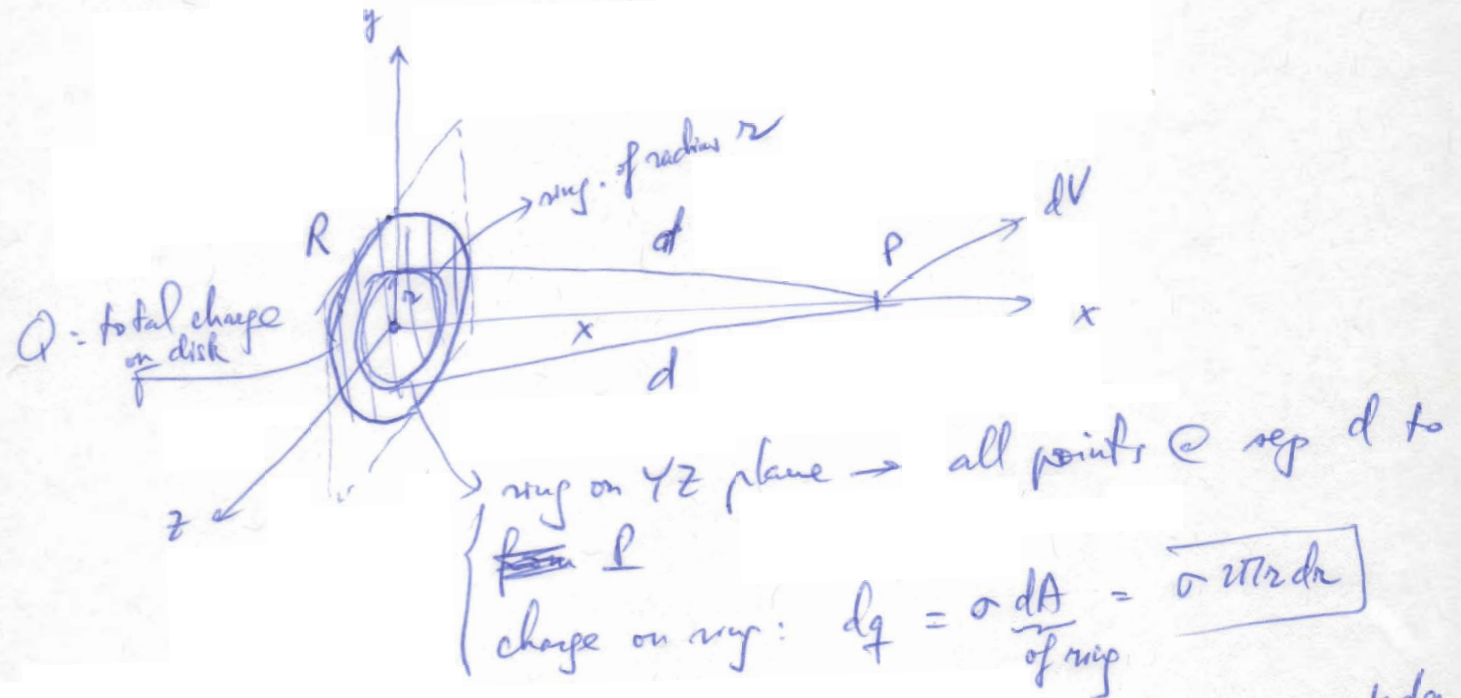 y
ring. of radius r
dV
R
d
P
r
Q = total charge
on disk
x
x
d
z
ring on YZ plane → all points @ sep d to
P
charge on ring: dq = σ dA = σ 2πr dr
of ring
k dq